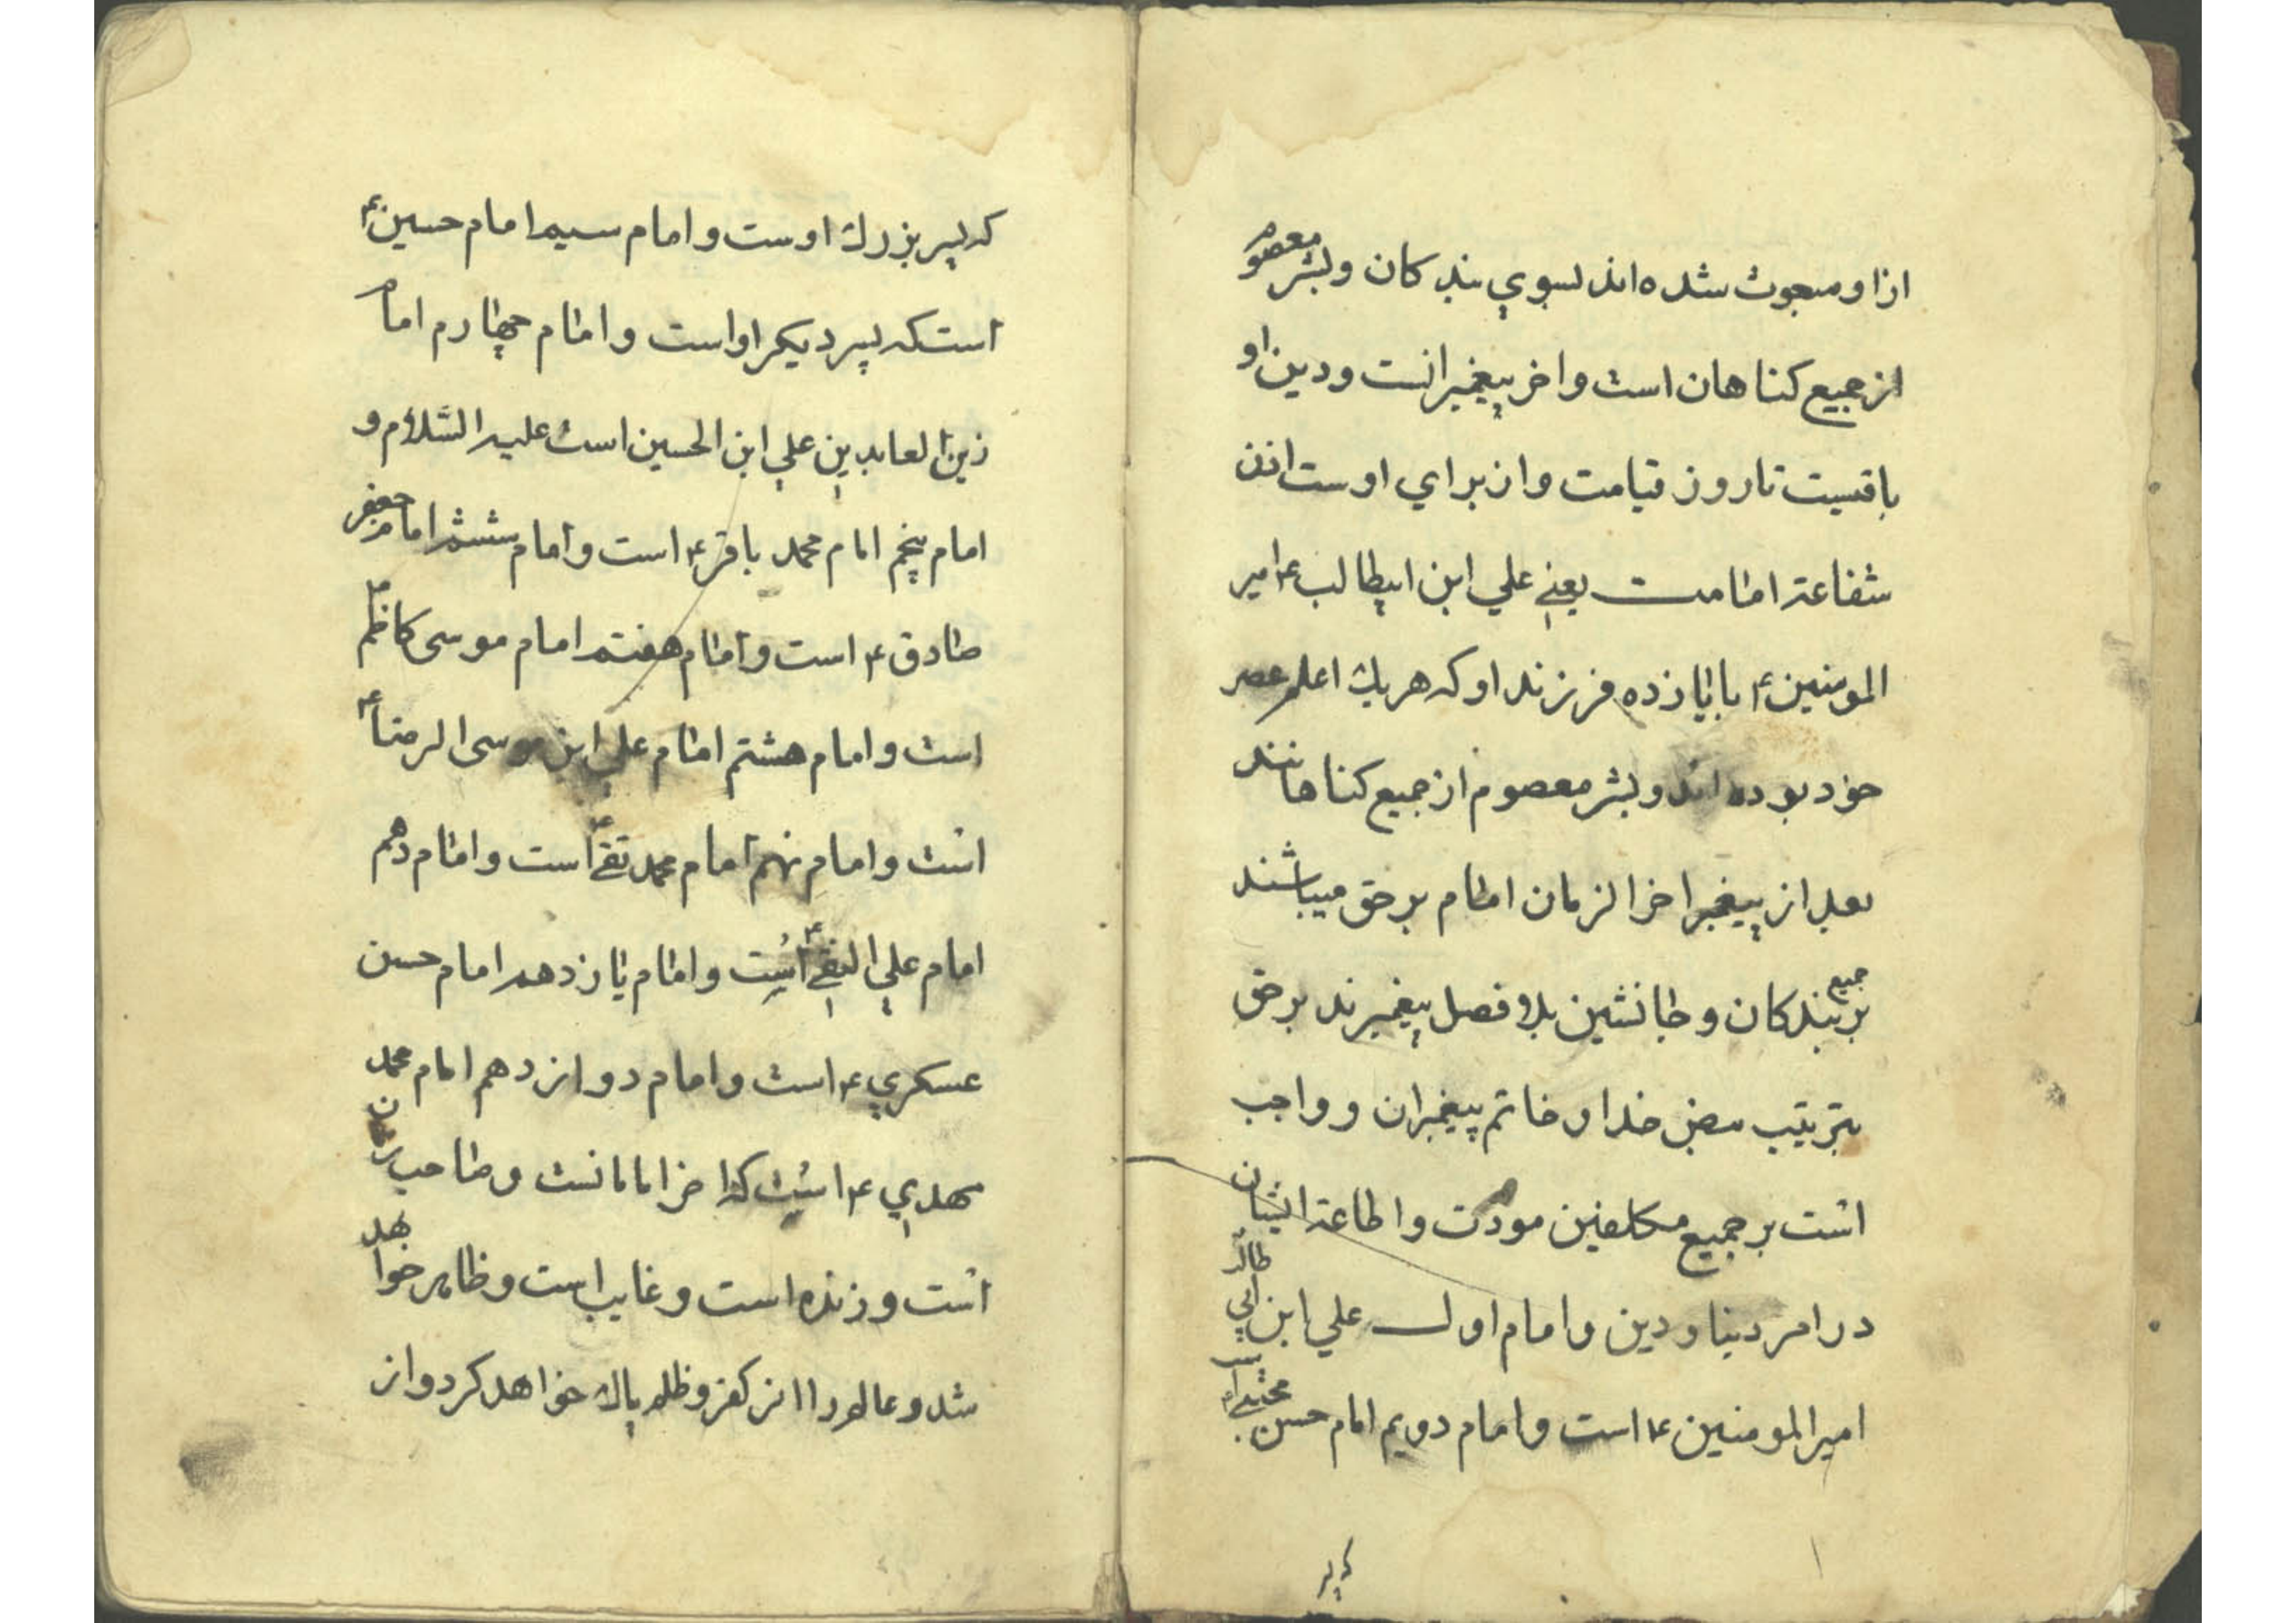 ازاو مبعوث شده اند بسوي بندکان وبشر معصوم
از جمیع کناهان است واخر پیغمبرانست ودین او
باقیست تا روز قیامت واز براي اوست اذن
شفاعة امامت یعنے علي ابن ابیطالب ع امیر
المومنین ع با یازده فرزند او که هریك اعلم عصر
خود بوده اند وبشر معصوم از جمیع کناهانند
بعد از پیغمبر اخر الزمان امام بر حق میباشند
بر جمیع بندکان و جانشین بلا فصل پیغمبرند بر حق
بترتیب بنص خدا و خاتم پیغمبران و واجب
است بر جمیع مکلفین مودت واطاعة ایشان
در امر دنیا و دین وامام اول علي ابن ابي طالب
امیر المومنین ع است وامام دویم امام حسن مجتبے ع
که پسر
که پسر بزرك اوست و امام سیم امام حسین ع
است که پسر دیکر او است وامام چهارم امام
زین العابدین علي ابن الحسین است علیه السّلام و
امام پنجم امام محمد باقر ع است وامام ششم امام جعفر
صادق ع است وامام هفتم امام موسی کاظم ع
است وامام هشتم امام علي ابن موسی الرضا ع
است وامام نهم امام محمد تقے ع است وامام دهم
امام علي النقے ع است وامام یازدهم امام حسن
عسکري ع است وامام دوازدهم امام محمد
مهدي ع است که اخر امامانست وصاحب زمان
است و زنده است و غایب است و ظاهر خواهد
شد و عالم را از کفر و ظلم پاك خواهد کرد واز